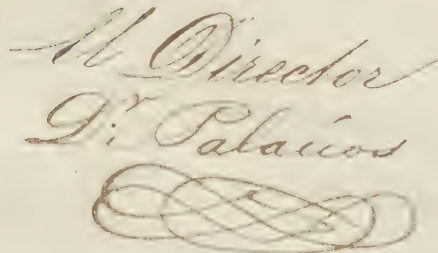 Al Director
D.r Palacios